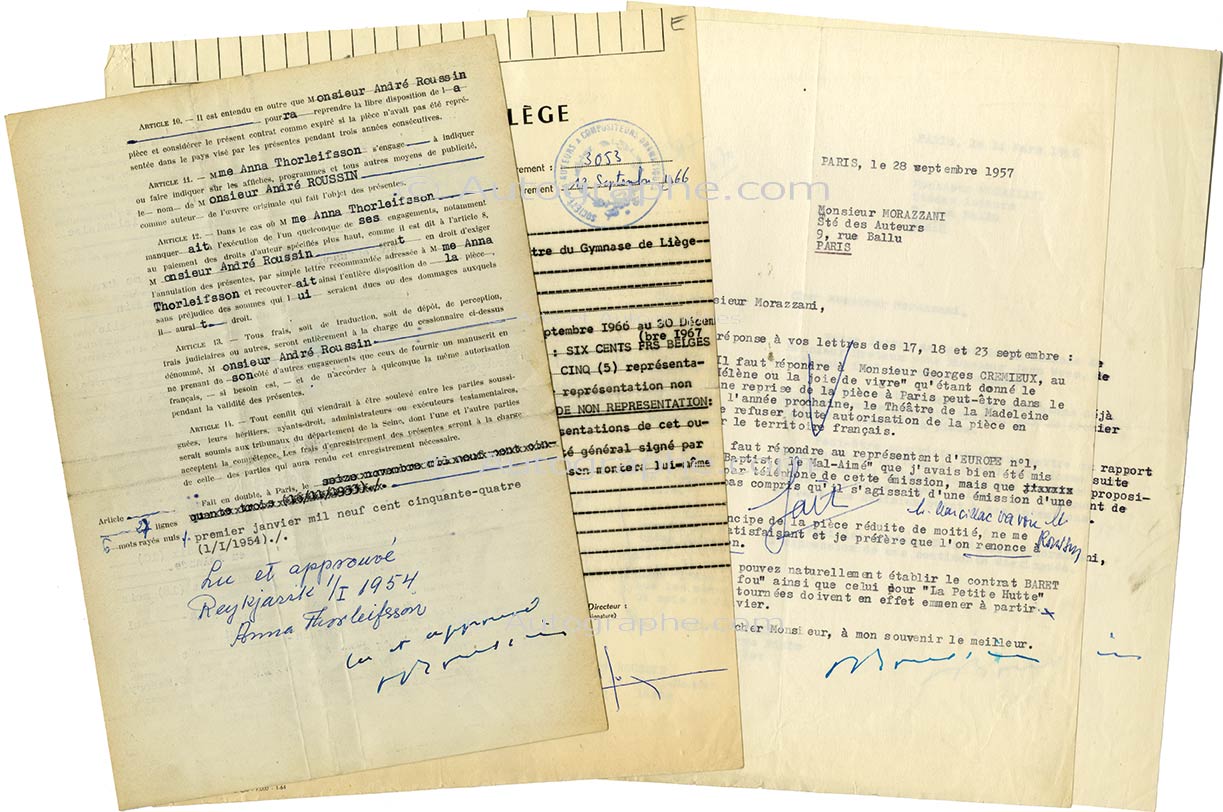 ARTICLE 10. — Il est entendu en outre que Monsieur André Roussin
pourra reprendre la libre disposition de la
pièce et considérer le présent contrat comme expiré si la pièce n'avait pas été repré-
sentée dans le pays visé par les présentes pendant trois années consécutives.
ARTICLE 11. — Mme Anna Thorleifsson s'engage à indiquer
ou faire indiquer sur les affiches, programmes et tous autres moyens de publicité,
le nom de Monsieur André ROUSSIN
comme auteur de l'œuvre originale qui fait l'objet des présentes.
ARTICLE 12. — Dans le cas où Mme Anna Thorleifsson
manquerait à l'exécution de l'un quelconque de ses engagements, notamment
au paiement des droits d'auteur spécifiés plus haut, comme il est dit à l'article 8,
Monsieur André Roussin serait en droit d'exiger
l'annulation des présentes, par simple lettre recommandée adressée à Mme Anna
Thorleifsson et recouvrerait ainsi l'entière disposition de la pièce,
sans préjudice des sommes qui lui seraient dues ou des dommages auxquels
il aurait droit.
ARTICLE 13. — Tous frais, soit de traduction, soit de dépôt, de perception,
frais judiciaires ou autres, seront entièrement à la charge du cessionnaire ci-dessus
dénommé, Monsieur André Roussin
ne prenant de son côté d'autres engagements que ceux de fournir un manuscrit en
français, — si besoin est, — et de n'accorder à quiconque la même autorisation
pendant la validité des présentes.
ARTICLE 14. — Tout conflit qui viendrait à être soulevé entre les parties soussi-
gnées, leurs héritiers, ayants-droit, administrateurs ou exécuteurs testamentaires,
serait soumis aux tribunaux du département de la Seine, dont l'une et l'autre parties
acceptent la compétence. Les frais d'enregistrement des présentes seront à la charge
de celle des parties qui aura rendu cet enregistrement nécessaire.
Fait en double, à Paris, le seize novembre mil neuf cent cin-
quante trois (16/11/1953)./.
premier janvier mil neuf cent cinquante-quatre
(1/I/1954)./.
Article
27 lignes
6 mots rayés nuls
Lu et approuvé
Reykjavik 1/I 1954
Anna Thorleifsson
Lu et approuvé
E
LIÈGE
rement : 3053
rement 12 Septembre 1966
SOCIÉTÉ AUTEURS & COMPOSITEURS DRAMA
tre du Gymnase de Liège
ptembre I966 au 30 Décem
(bre I967
: SIX CENTS FRS BELGES
CINQ (5) représenta-
représentation non
DE NON REPRESENTATION:
sentations de cet ou-
té général signé par
son montera lui-même
Directeur :
signature)
PARIS, le 28 septembre 1957
Monsieur MORAZZANI
Sté des Auteurs
9, rue Ballu
PARIS
sieur Morazzani,
réponse à vos lettres des 17, 18 et 23 septembre :
Il faut répondre à Monsieur Georges CREMIEUX, au
Hélène ou la joie de vivre" qu'étant donné le
une reprise de la pièce à Paris peut-être dans le
l'année prochaine, le Théâtre de la Madeleine
e refuser toute autorisation de la pièce en
r le territoire français.
faut répondre au représentant d'EUROPE n°1,
Baptiste le Mal-Aimé" que j'avais bien été mis
par téléphone de cette émission, mais que
pas compris qu'il s'agissait d'une émission d'une
fait
Roussin
ncipe de la pièce réduite de moitié, ne me
atisfaisant et je préfère que l'on renonce à
on.
pouvez naturellement établir le contrat BARET
fou" ainsi que celui pour "La Petite Hutte"
tournées doivent en effet emmener à partir
vier.
cher Monsieur, à mon souvenir le meilleur.
de
éjà
ier
rapport
suite
proposi-
nt de
ni,
© Autographe.com
Autographe.com